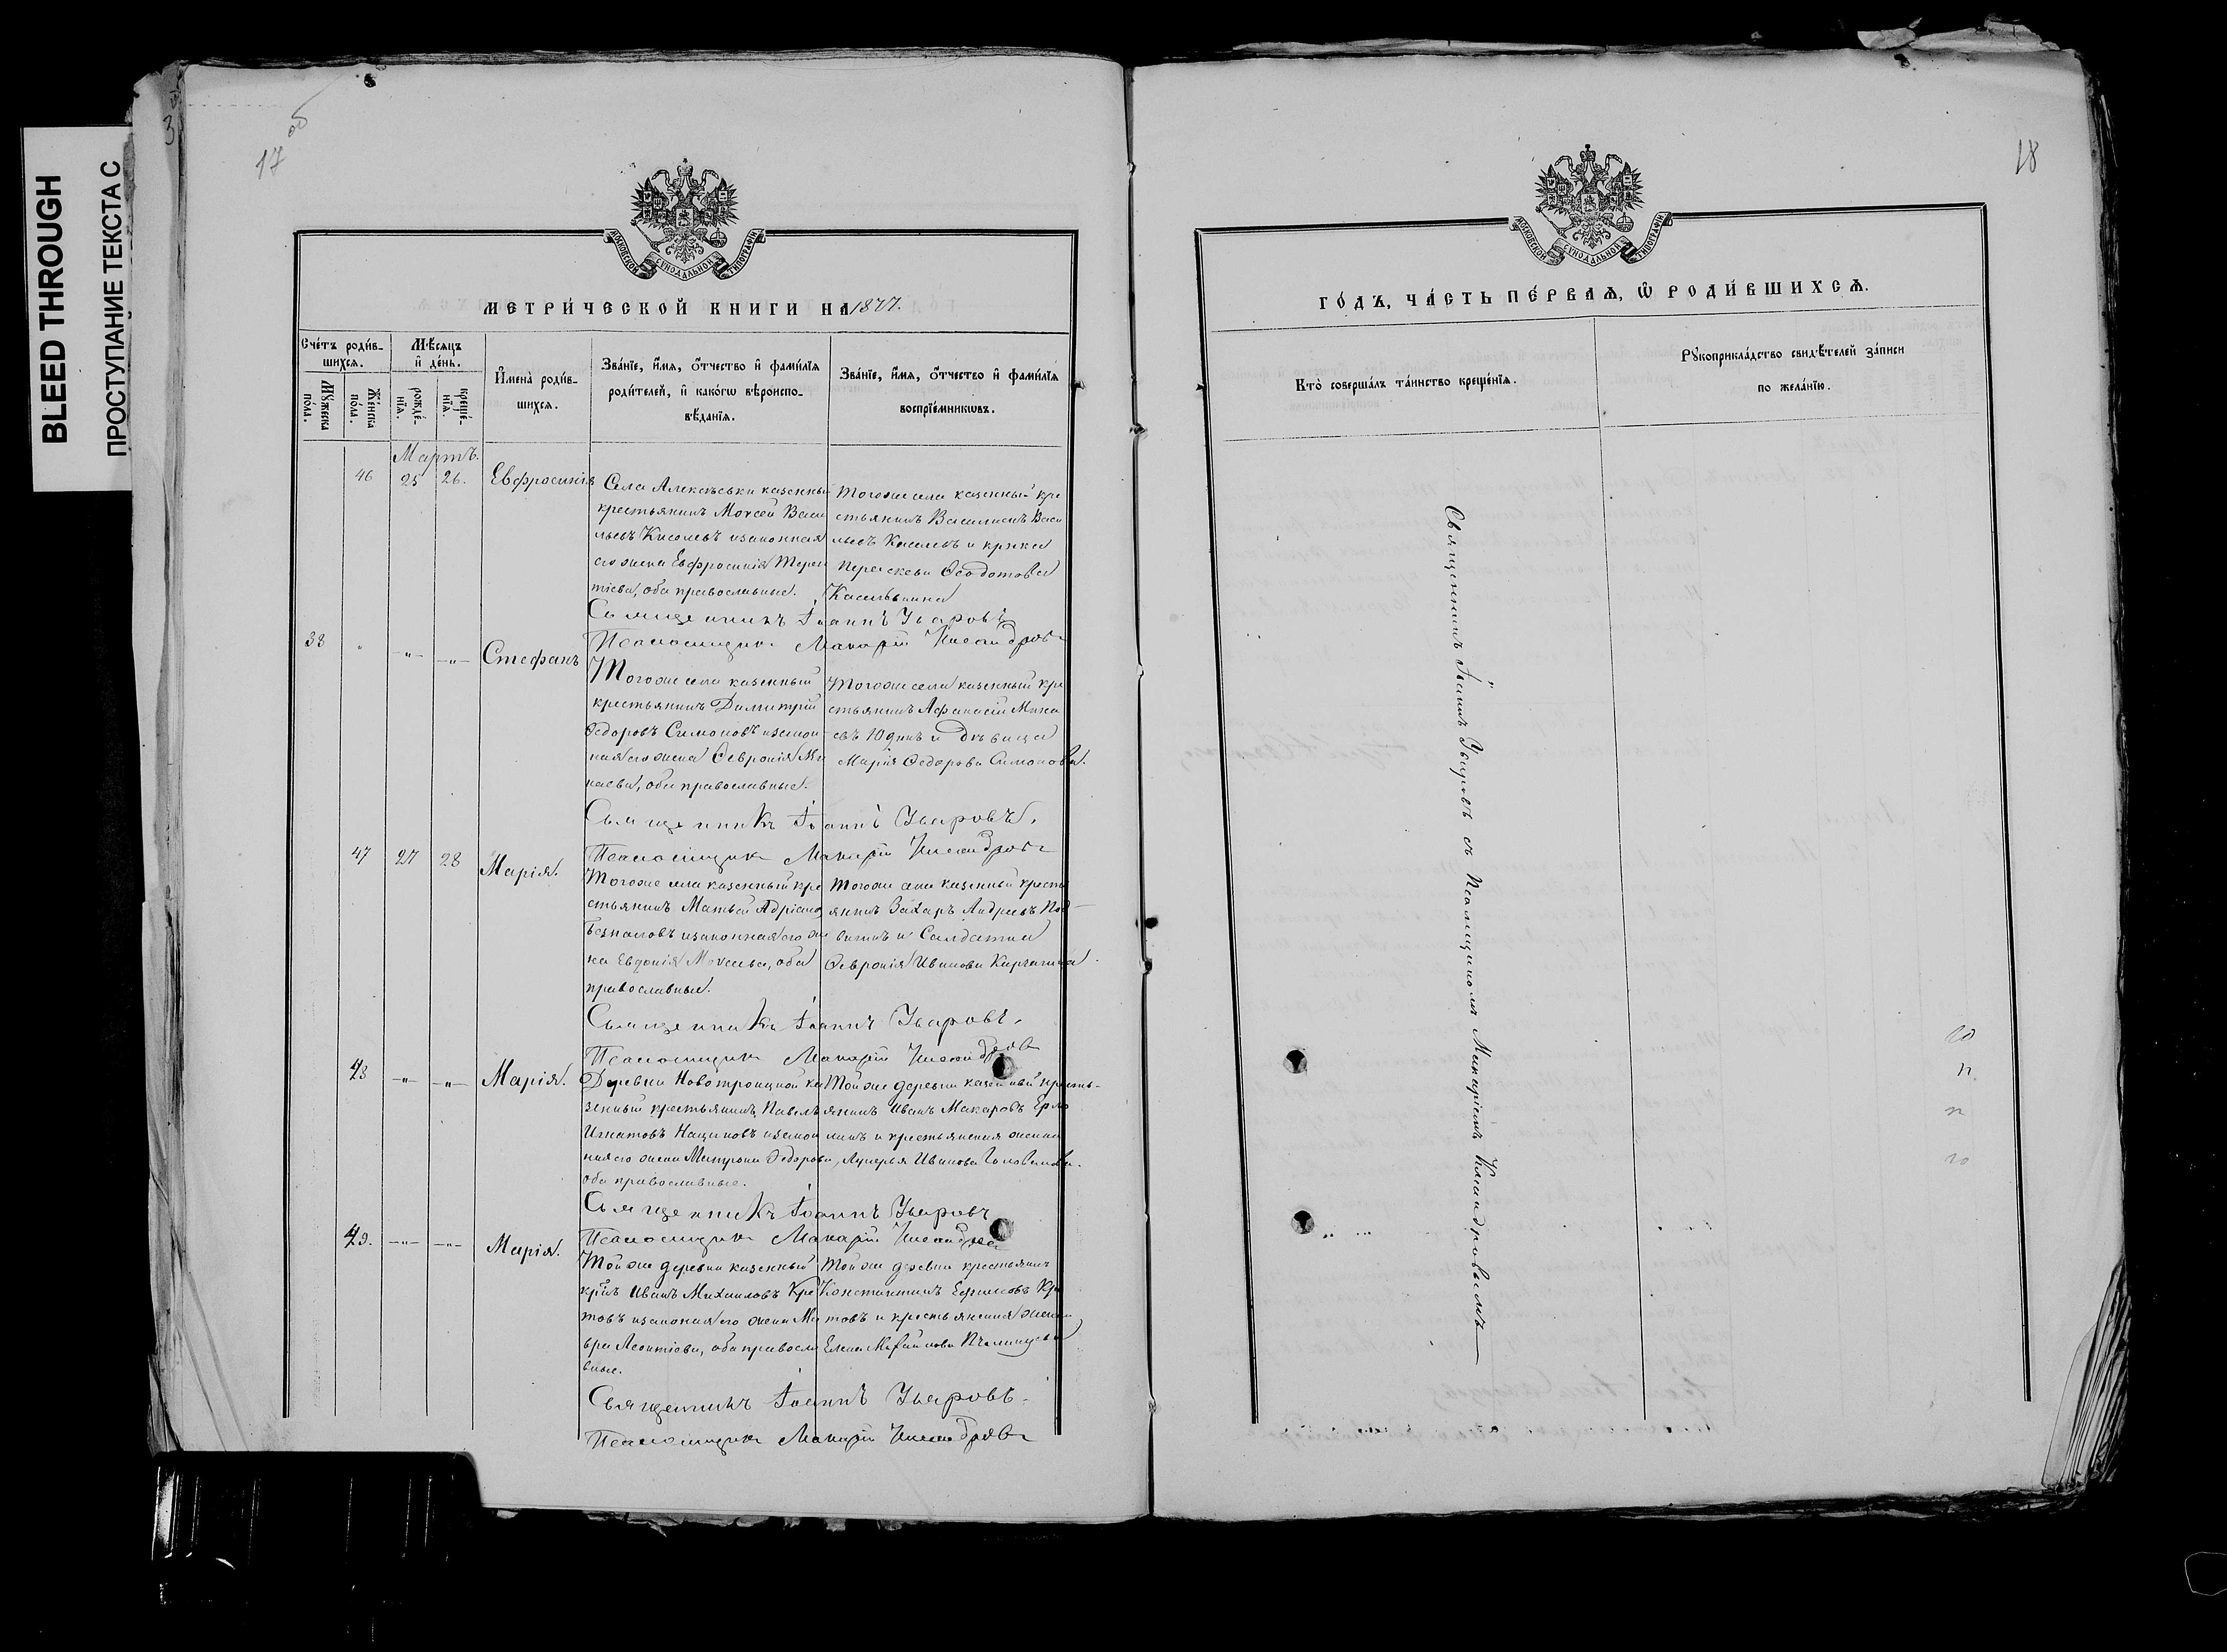 BLEED THROUGH
ПРОСТУПАНИЕ ТЕКСТА С
3
17 об
МОСКОВСКОЙ СѴНОДАЛЬНОЙ ТИПОГРАФІИ
МЕТРИ́ЧЕСКОЙ КНИГИ НА 1877.
Сче́тъ роди́в-
шихсѧ.
Мꙋ́жеска
по́ла.
Же́нска
по́ла.
Мѣ́сѧцъ
и҆ де́нь.
рожде́-
нїѧ.
креще́-
нїѧ.
И҆мена̀ роди́в-
шихсѧ.
Зва́нїе, и҆́мѧ, ѻ҆́тчество и҆ фамѝлїѧ
роди́телей, и҆ како́гѡ вѣроиспо-
вѣ́данїѧ.
Зва́нїе, и҆́мѧ, ѻ҆́тчество и҆ фамѝлїѧ
воспрїе́мникѡвъ.
Мартъ.
46 25 26. Евфросинія
Села Алексѣевки казенный
крестьянинъ Моѵсей Васи
льевъ Киселевъ изаконная
его жена Евфросинія Терен
тіева, оба православные.
Тогоже села казенный кре
стьянинъ Василій Васи
льевъ Киселевъ и
Параскева Ѳеодотова
Священникъ Іоаннъ Уваровъ
Псаломщикъ Макарій
38 " -"- -"- Стефанъ
Тогоже села казенный
крестьянинъ Димитрій
Ѳедоровъ Симоновъ изакон
ная его жена Ѳевронія Ми
наева, оба православные.
Тогоже села казенный кре
стьянинъ Афанасій Мина
евъ Юдинъ и дѣвица
Марія Ѳедорова Симонова.
Священникъ Іоаннъ Уваровъ.
Псаломщикъ Макарій
47 27 28 Марія.
Тогоже села казенный кре
стьянинъ Матвей Адріановъ
изаконная его же
на Евдокія Моѵсеева, оба
православные.
Тогоже села казенный кресть
янинъ Захаръ Андреевъ
и Салдатка
Ѳевронія Иванова
Священникъ Іоаннъ Уваровъ.
Псаломщикъ Макарій
48 -"- -"- Марія.
Деревни Новотроицкой ка
зенный крестьянинъ Павелъ
Игнатовъ изакон
ная его жена Матрона Ѳедорова,
оба православные.
Тойже деревни казенный кресть-
янинъ Иванъ Макаровъ
и крестьянская жена
Лукерья Иванова
Священникъ Іоаннъ Уваровъ
Псаломщикъ Макарій
49. -"- -"- Марія.
Тойже деревни казенный
кр̃нъ Иванъ Михаиловъ Кро
товъ изаконная его жена Ма
вра Леонтіева, оба правосла
вные.
Тойже деревни крестьянинъ
Константинъ Ефимовъ Кро
товъ и крестьянская жена
Елена
Священникъ Іоаннъ Уваровъ.
Псаломщикъ Макарій
18
МОСКОВСКОЙ СѴНОДАЛЬНОЙ ТИПОГРАФІИ
ГО́ДЪ, ЧА́СТЬ ПЕ́РВАѦ, Ѽ РОДИ́ВШИХСѦ.
Кто̀ соверша́лъ та́инство креще́нїѧ.
Рꙋкоприкла́дство свидѣ́телей за́писи
по жела́нїю.
Священникъ Іоаннъ Уваровъ съ Псаломщикомъ Макаріемъ